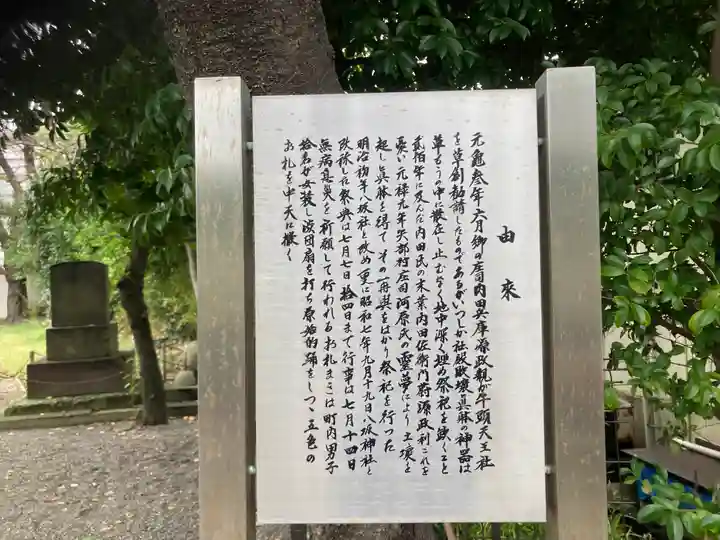 由來
元亀叁年六月郷の庄司内田兵庫源政親が牛頭天王社
を草創勧請したものであるがいつしか社殿敗壊眞躰の神器は
草もうの中に散在し止むなく地中深く埋め祭祀を欽くこと
貳佰年に及んだ内田氏の末葉内田佐衛門尉源政利これを
憂い元禄元年矢部村庄司河原氏の靈夢により土壌を
起し眞躰を得て その再興をはかり祭祀を行った
明治初年八坂社と改め 更に昭和七年九月十九日八坂神社と
改称した祭典は七月七日拾四日まで行事は七月十四日
無病息災を祈願して行われるお札まきは町内男子
拾名が女装し渋団扇を打ち原始的踊をしつゝ五色の
お札を中天に撒く